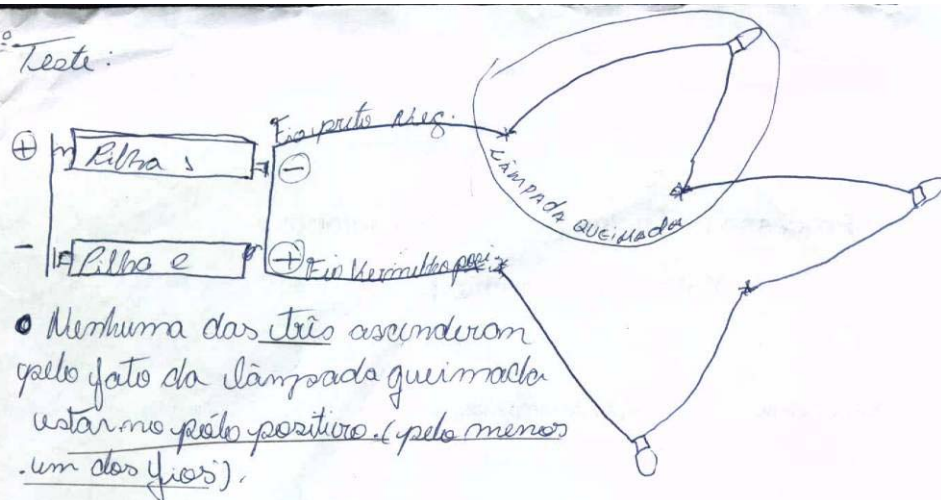 Teste:
Fio preto Neg.
+ Pilha 1 -
- Pilha 2 + Fio Vermelho posi.
LÂMPADA QUEIMADA
• Nenhuma das três ascenderam
pelo fato da lâmpada queimada
estar no pólo positivo. (pelo menos
um dos fios).